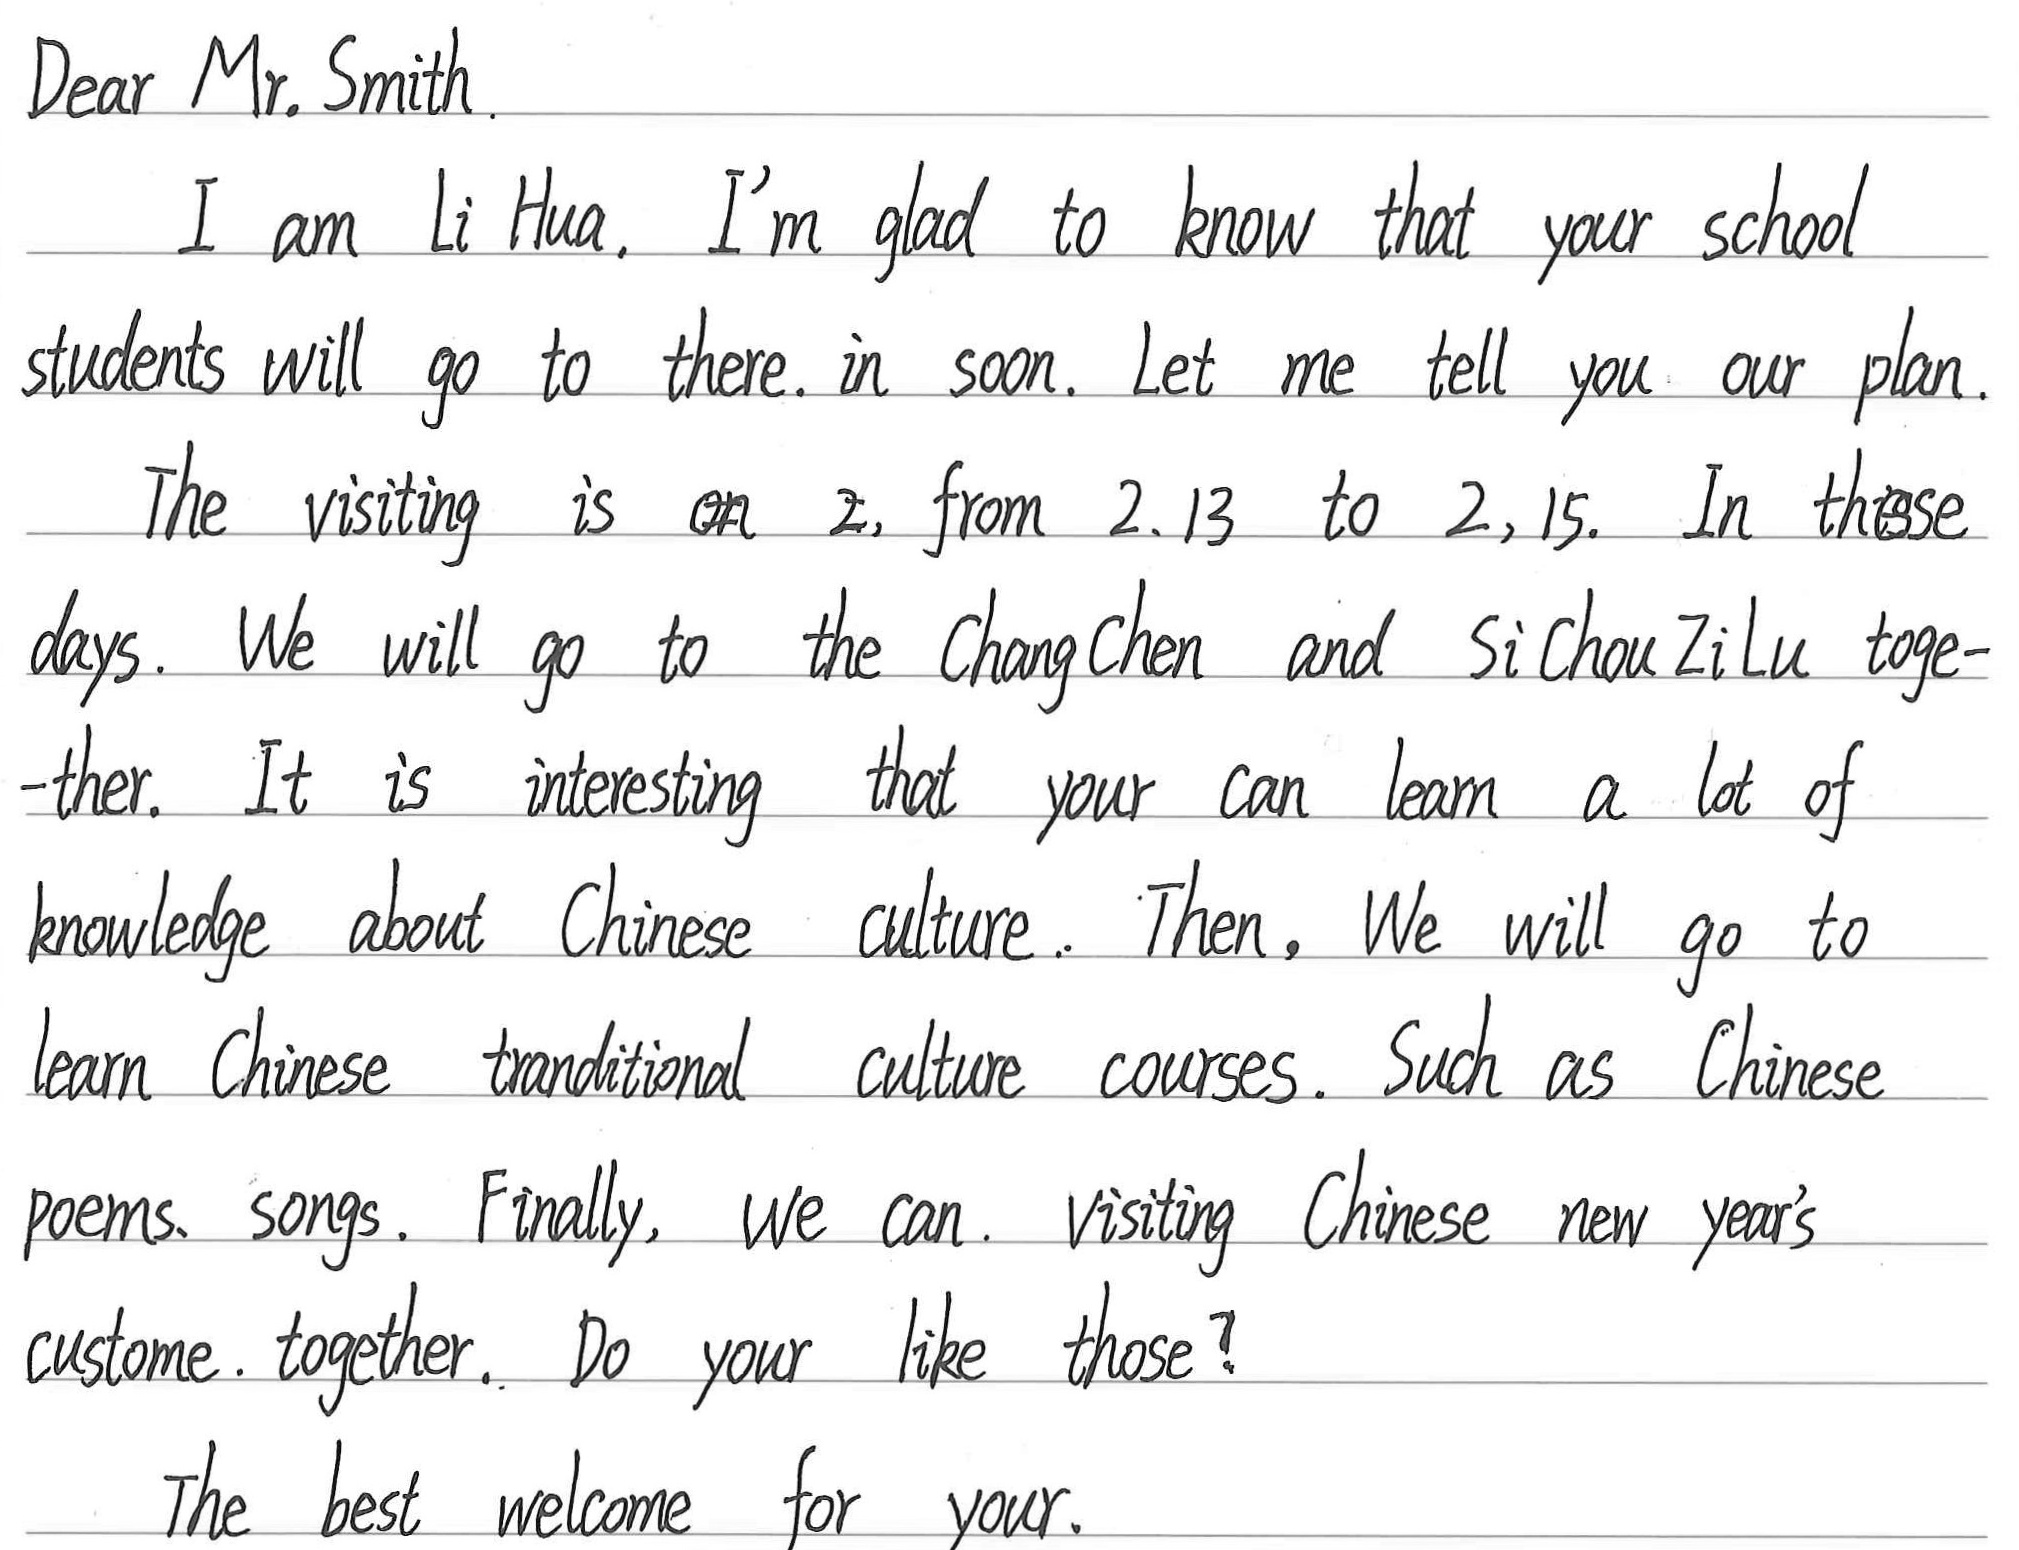 Dear Mr. Smith.
I am Li Hua. I'm glad to know that your school
students will go to there. in soon. Let me tell you our plan.
The visiting is from 2.13 to 2,15. In these
days. We will go to the ChangChen and SiChouZiLu toge-
-ther. It is interesting that your can learn a lot of
knowledge about Chinese culture. Then, We will go to
learn Chinese tranditional culture courses. Such as Chinese
poems、songs. Finally, we can. visiting Chinese new year's
custome. together. Do your like those?
The best welcome for your.